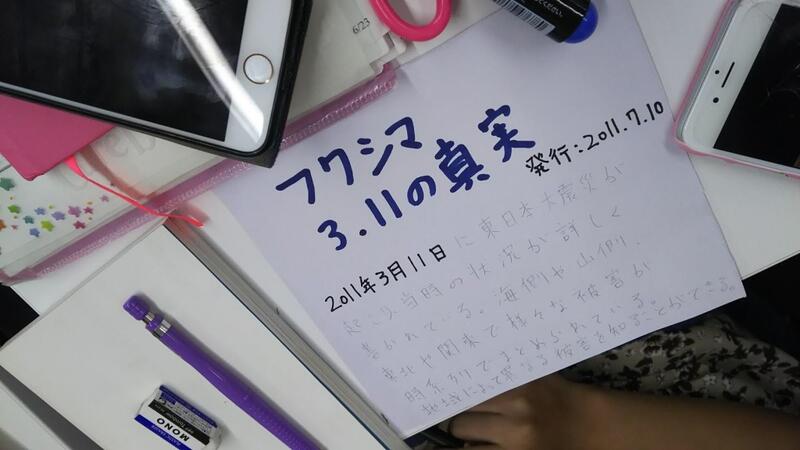 6/23
フクシマ
3.11の真実
発行:2011.7.10
2011年3月11日に東日本大震災が
起こり当時の状況が詳しく
書かれている。海側や山側、
東北や関東で様々な被害が
時系列でまとめられている。
地域によって異なる被害を知ることができる。
MONO